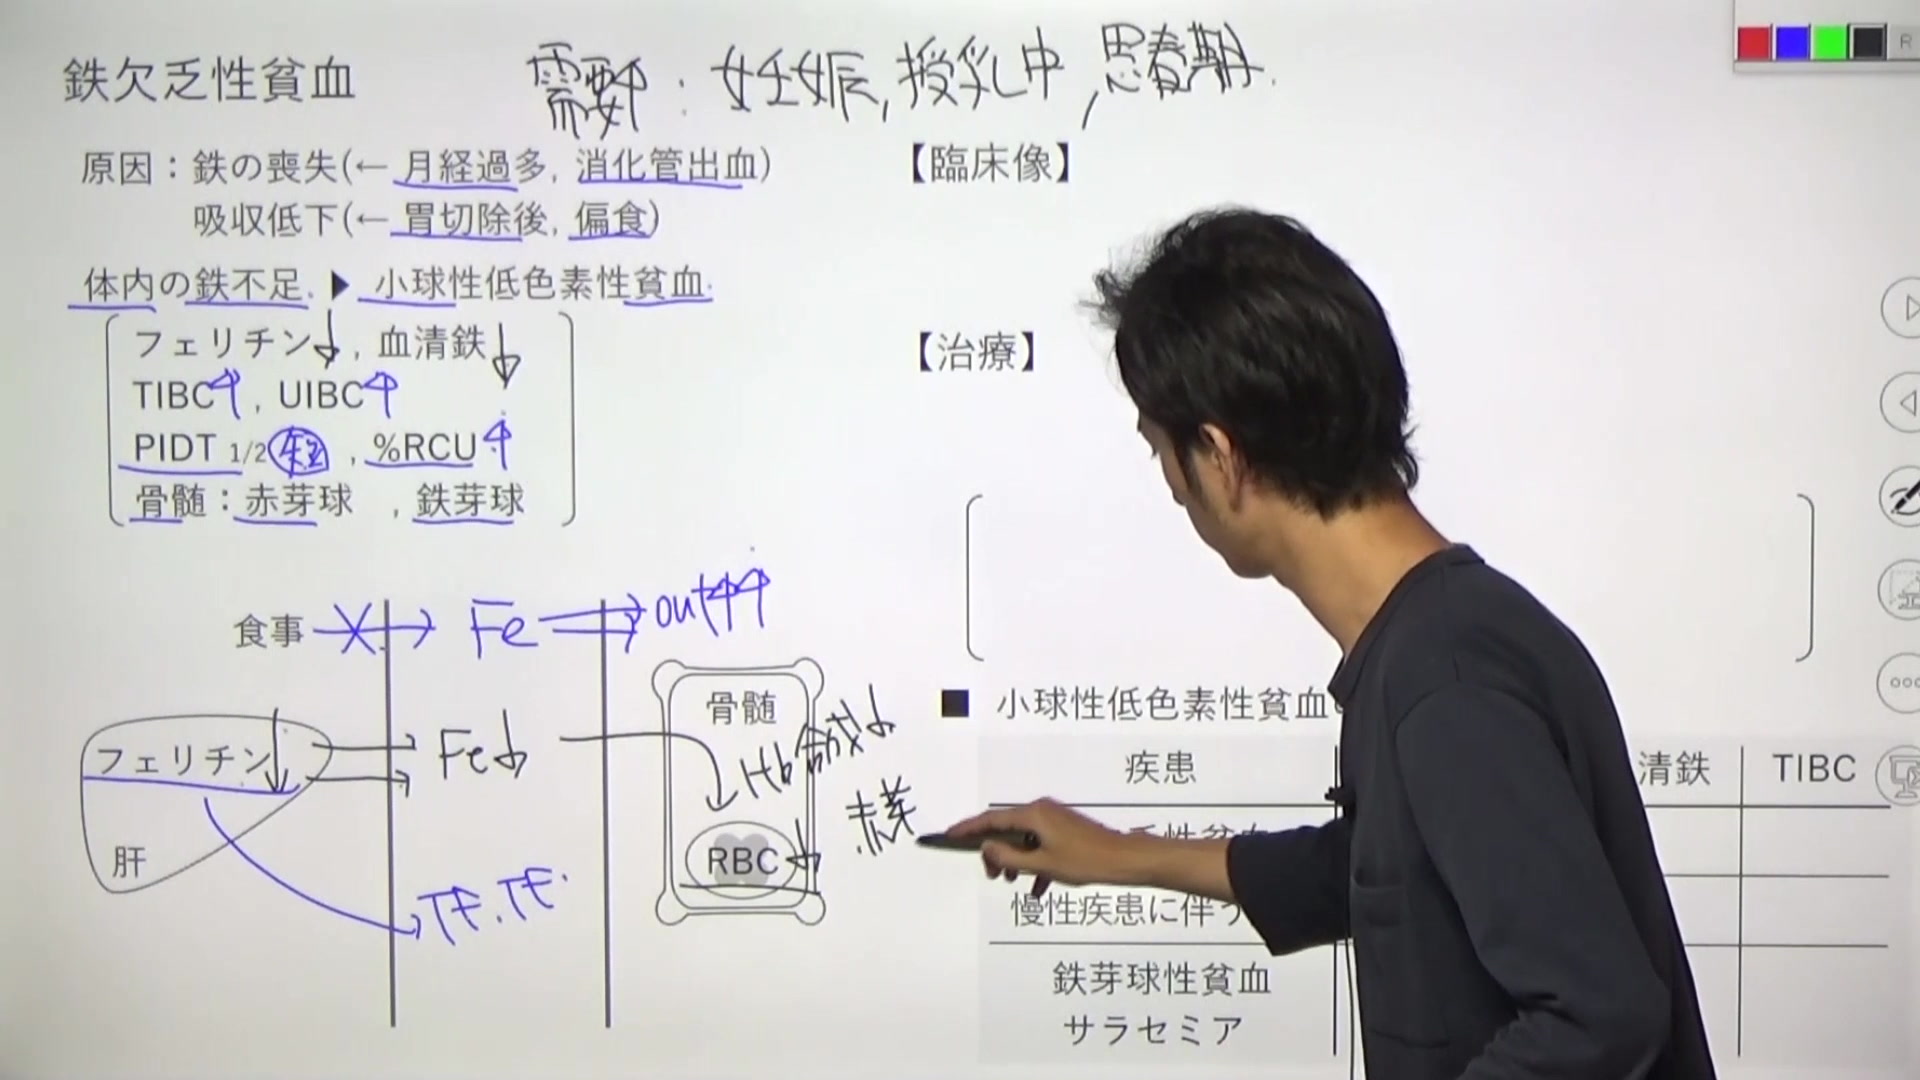 鉄欠乏性貧血
需要↑：妊娠, 授乳中, 思春期
原因：鉄の喪失(← 月経過多, 消化管出血)
吸収低下(← 胃切除後, 偏食)
体内の鉄不足 ▶ 小球性低色素性貧血
フェリチン↓, 血清鉄↓
TIBC↑, UIBC↑
PIDT 1/2 短, %RCU↑
骨髄：赤芽球 , 鉄芽球
食事 → Fe → out↑↑
フェリチン↓ → Fe↓
肝
Tf. Tf
骨髄
Hb合成↓
RBC↓
【臨床像】
【治療】
■ 小球性低色素性貧血
疾患
清鉄
TIBC
慢性疾患に伴う
鉄芽球性貧血
サラセミア
R